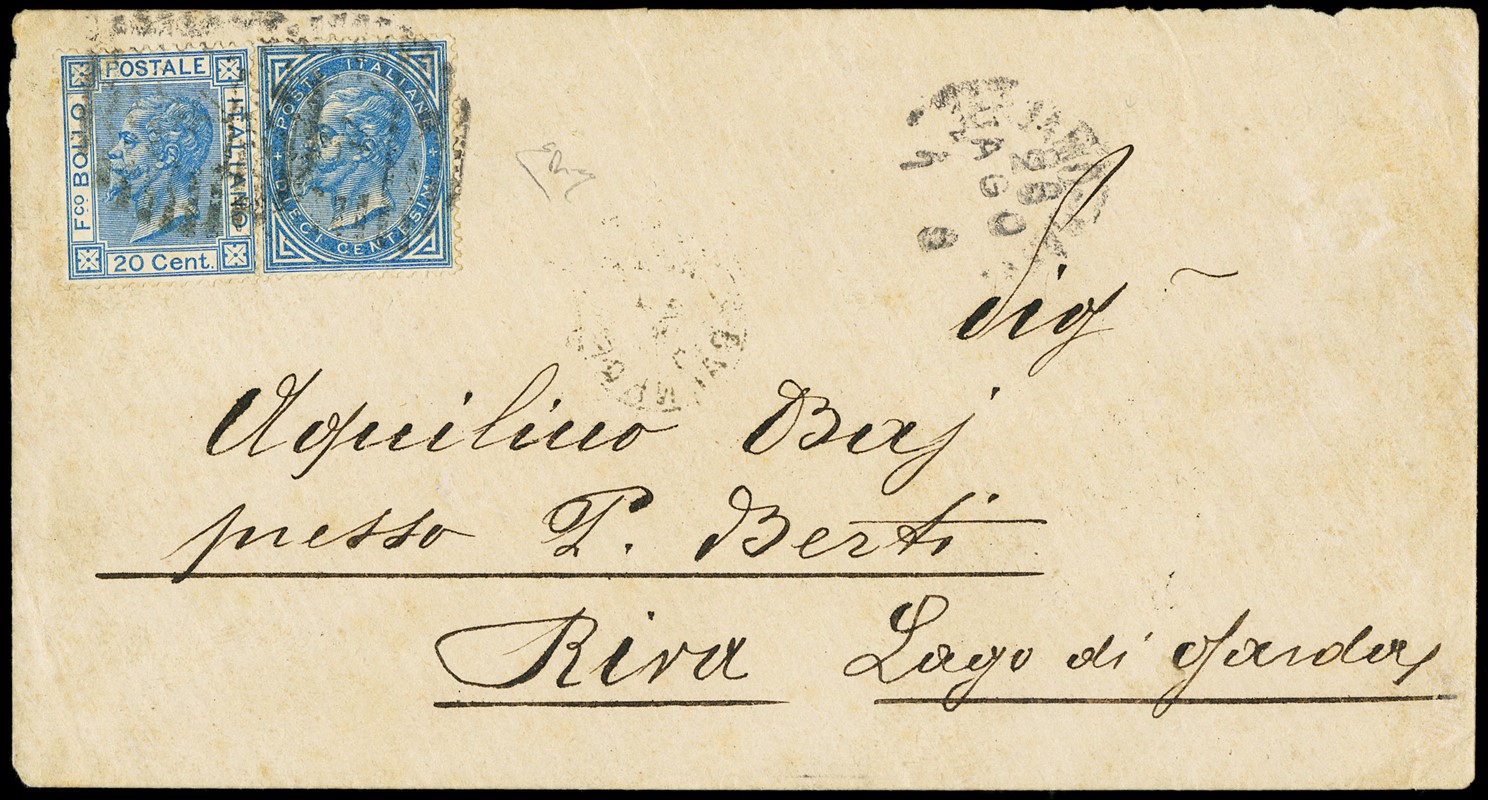 POSTALE
F.co BOLLO
ITALIANO
20 Cent.
+ POSTE ITALIANE +
DIECI CENTESIMI
28
AGO
Sig
Aquilino Baj
presso P. Berti
Riva Lago di Garda